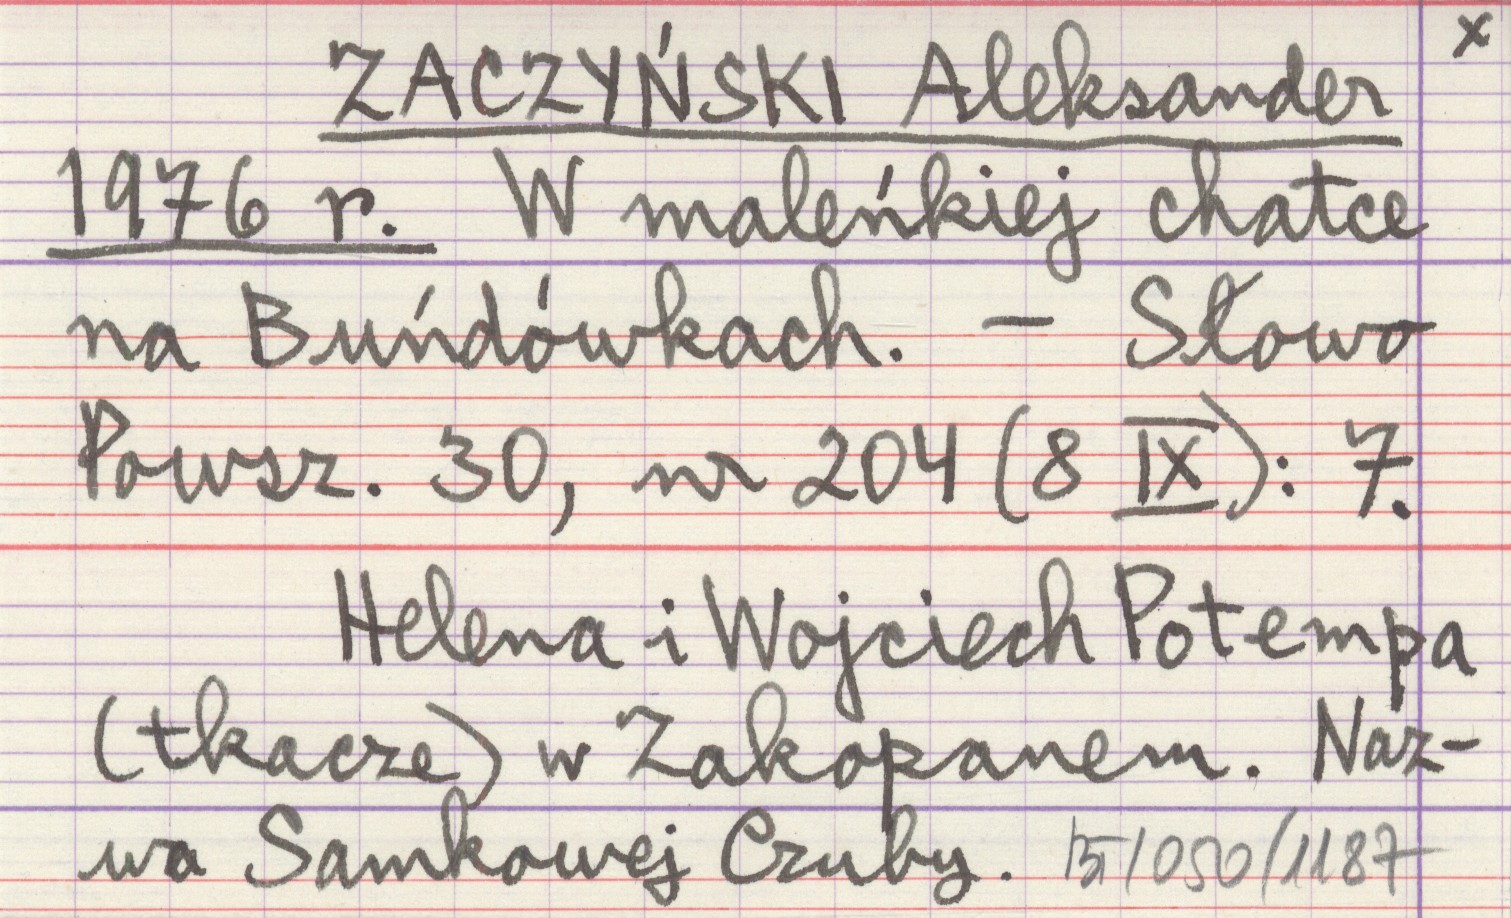 x
ZACZYŃSKI Aleksander
1976 r. W maleńkiej chatce
na Buńdówkach. – Słowo
Powsz. 30, nr 204 (8 IX): 7.
Helena i Wojciech Potempa
(tkacze) w Zakopanem. Naz-
wa Samkowej Czuby.